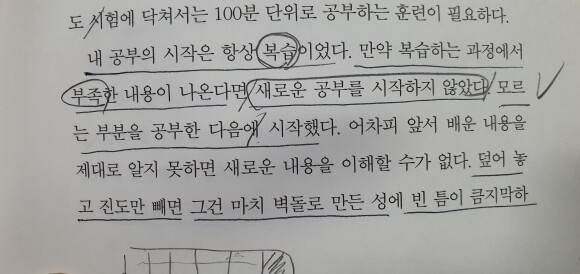 도 시험에 닥쳐서는 100분 단위로 공부하는 훈련이 필요하다.
내 공부의 시작은 항상 복습이었다. 만약 복습하는 과정에서
부족한 내용이 나온다면 새로운 공부를 시작하지 않았다. 모르
는 부분을 공부한 다음에 시작했다. 어차피 앞서 배운 내용을
제대로 알지 못하면 새로운 내용을 이해할 수가 없다. 덮어 놓
고 진도만 빼면 그건 마치 벽돌로 만든 성에 빈 틈이 큼지막하